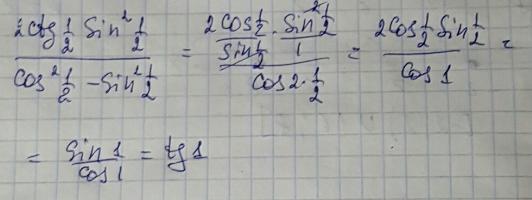 2ctg 1/2 Sin² 1/2 / (Cos² 1/2 - Sin² 1/2) = (2Cos 1/2 / Sin 1/2 · Sin² 1/2 / 1) / (Cos 2 · 1/2) = 2Cos 1/2 Sin 1/2 / Cos 1 =
= Sin 1 / Cos 1 = tg 1